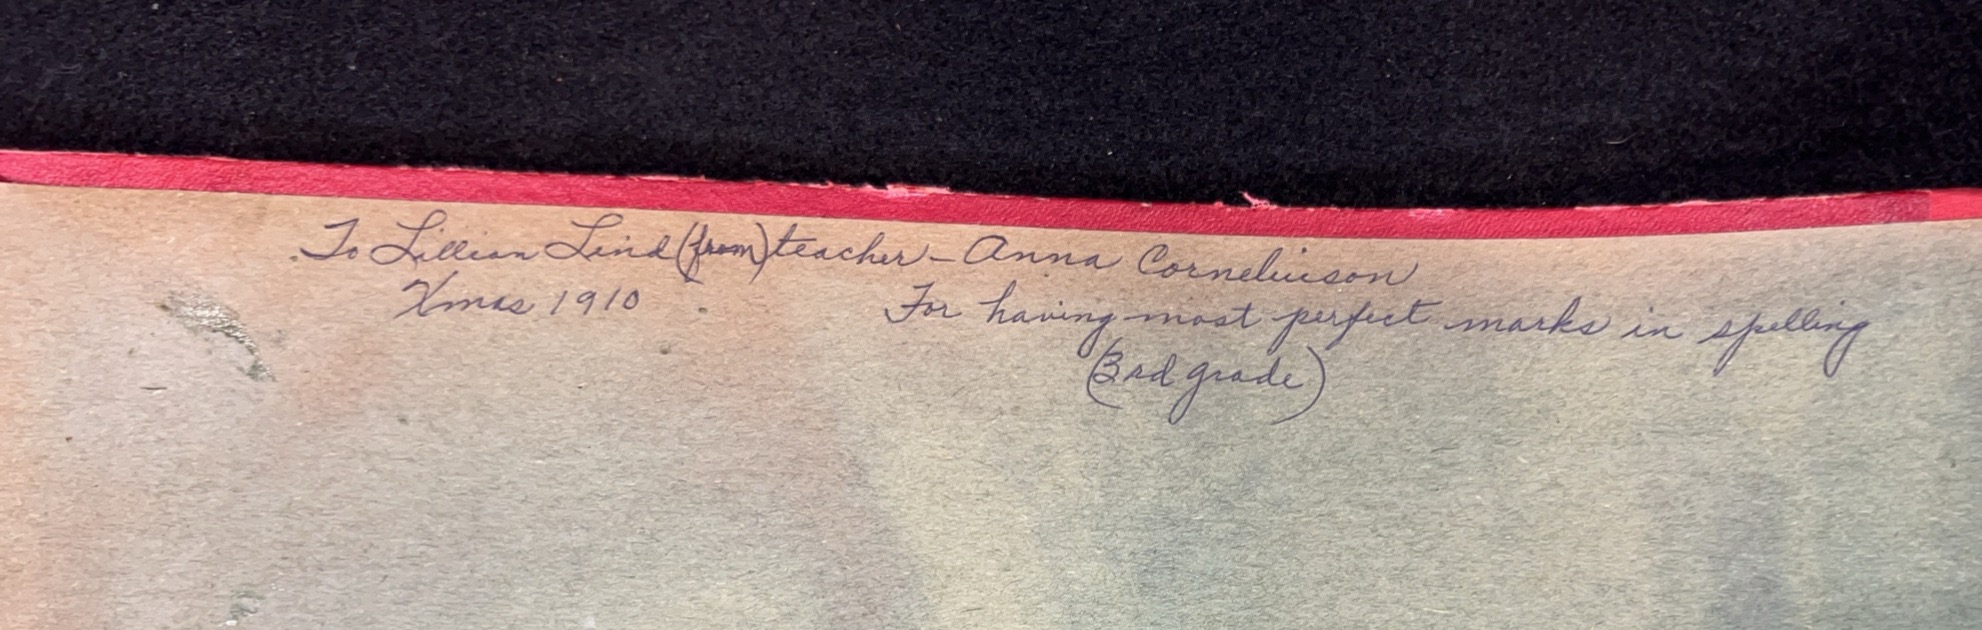 To Lillian Lind (from) teacher - Anna Corneliuson
Xmas 1910
For having most perfect marks in spelling
(3rd grade)